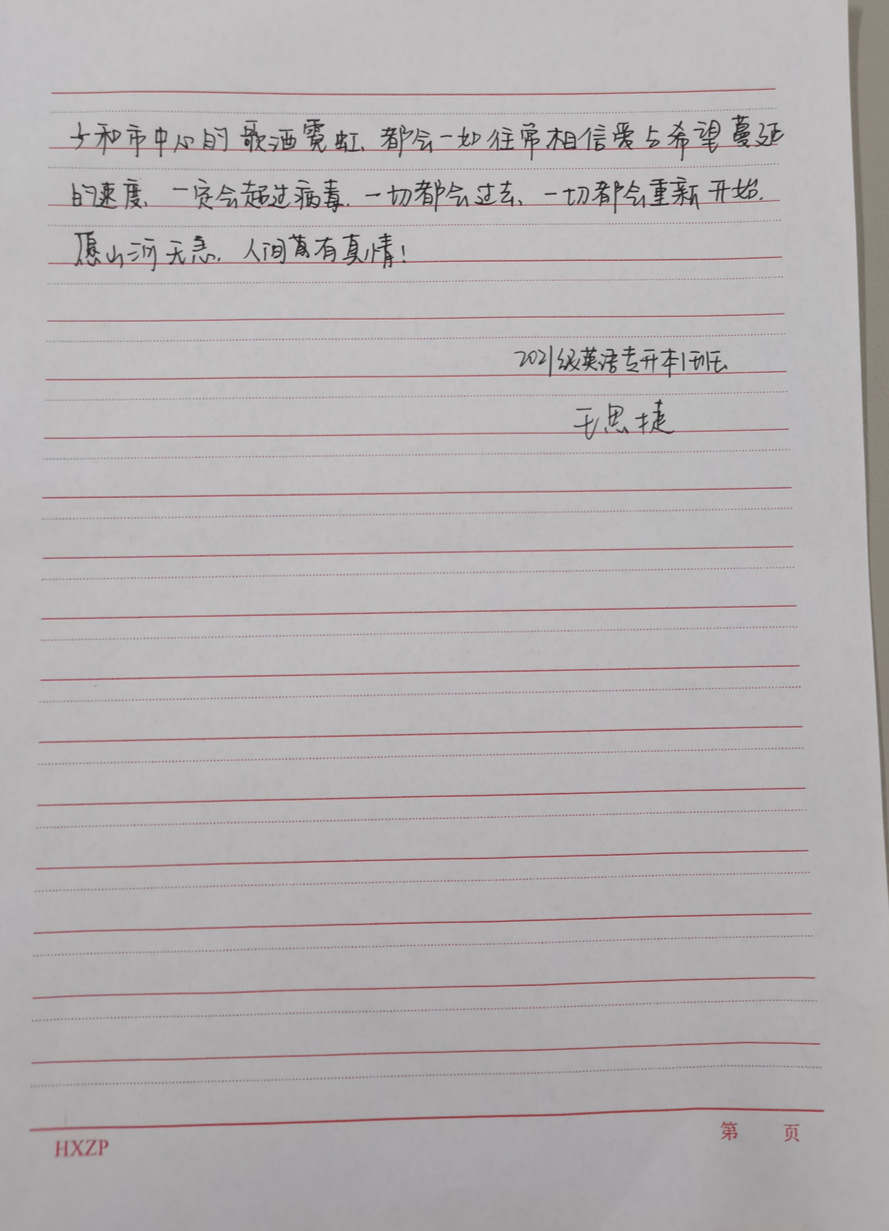 子和市中心的歌酒霓虹、都会一如往常相信爱与希望蔓延
的速度、一定会超过病毒.一切都会过去、一切都会重新开始.
愿山河无恙.人间万有真情!
2021级英语专升本1班
王思捷
HXZP
第 页